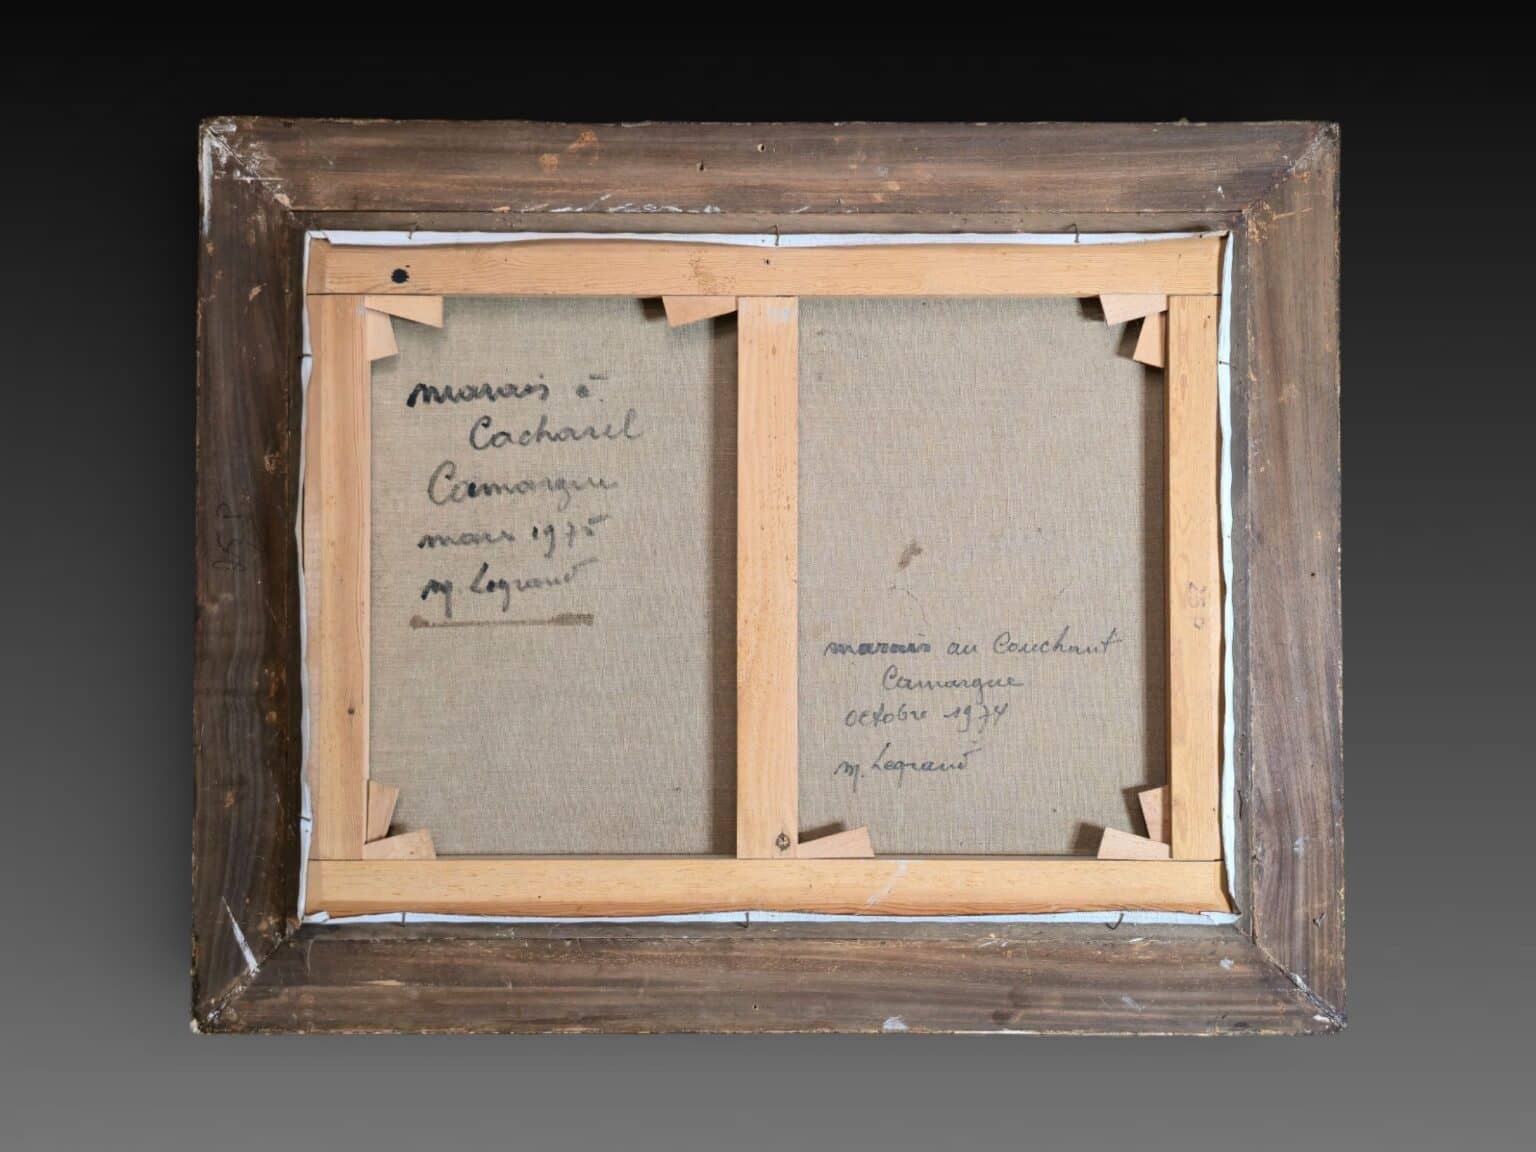 marais à
Cacharel
Camargue
mars 1975
M Legrand
marais au Couchant
Camargue
octobre 1974
M. Legrand
25 P
25 P